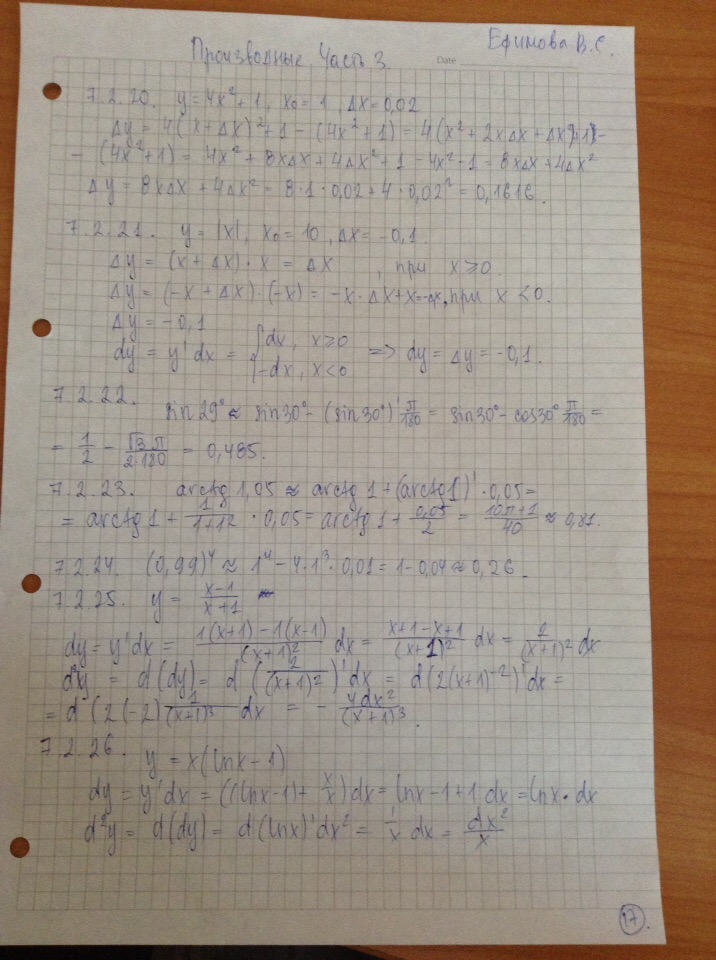 Ефимова В.С.
Производные. Часть 3.
Date
7.2.20. y = 4x² + 1, x₀ = 1, Δx = 0,02
Δy = 4(x + Δx)² + 1 - (4x² + 1) = 4(x² + 2xΔx + Δx²) + 1 -
- (4x² + 1) = 4x² + 8xΔx + 4Δx² + 1 - 4x² - 1 = 8xΔx + 4Δx²
Δy = 8xΔx + 4Δx² = 8·1·0,02 + 4·0,02² = 0,1616.
7.2.21. y = |x|, x₀ = 10, Δx = -0,1.
Δy = (x + Δx) · x = Δx , при x ≥ 0.
Δy = (-x + Δx)·(-x) = -x·Δx + x = -Δx, при x < 0.
Δy = -0,1
dy = y'dx = { dx, x ≥ 0
-dx, x < 0 => dy = Δy = -0,1.
7.2.22. sin 29° ≈ sin 30° - (sin 30°)' π/180 = sin 30° - cos 30° π/180 =
= 1/2 - √3 π/2·180 = 0,485.
7.2.23. arctg 1,05 ≈ arctg 1 + (arctg 1)' · 0,05 =
= arctg 1 + 1/1+1² · 0,05 = arctg 1 + 0,05/2 = 10π+1/40 ≈ 0,81.
7.2.24. (0,99)⁴ ≈ 1⁴ - 4·1³·0,01 = 1 - 0,04 ≈ 0,26.
7.2.25. y = x-1/x+1
dy = y'dx = 1(x+1) - 1(x-1)/(x+1)² dx = x+1-x+1/(x+1)² dx = 2/(x+1)² dx
d²y = d(dy) = d(2/(x+1)²)'dx = d(2(x+1)⁻²)'dx =
= d(2(-2) 1/(x+1)³ dx = - 4dx²/(x+1)³.
7.2.26. y = x(lnx - 1)
dy = y'dx = ((lnx - 1) + x/x)dx = lnx - 1 + 1 dx = lnx · dx
d²y = d(dy) = d(lnx)'dx² = 1/x dx = dx²/x
17